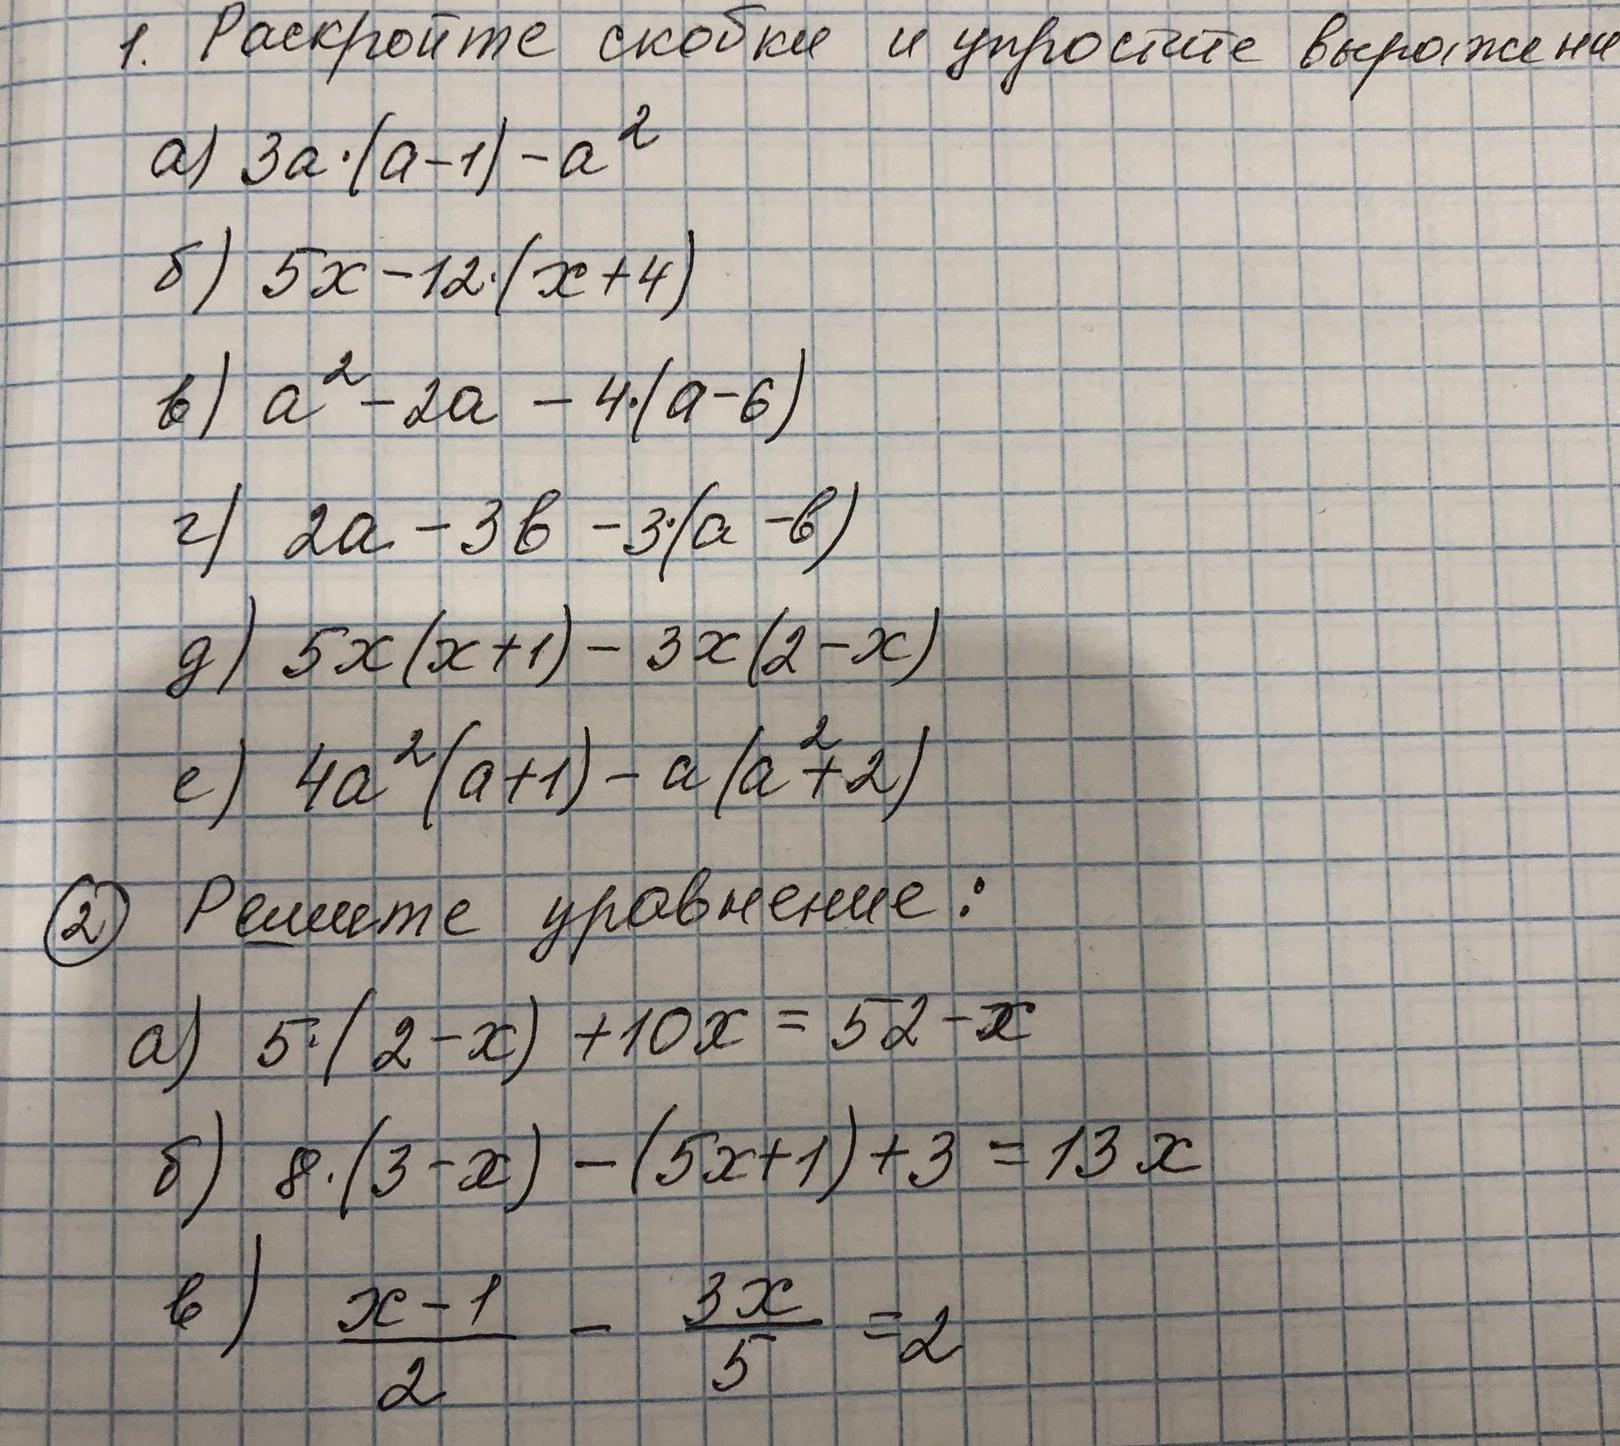 1. Раскройте скобки и упростите выражени
а) 3a·(a-1)-a²
б) 5x-12·(x+4)
в) a²-2a-4·(a-6)
г) 2a-3b-3·(a-b)
д) 5x(x+1)-3x(2-x)
е) 4a²(a+1)-a(a²+2)
② Решите уравнение:
а) 5·(2-x)+10x=52-x
б) 8·(3-x)-(5x+1)+3=13x
в) (x-1)/2 - 3x/5 =2